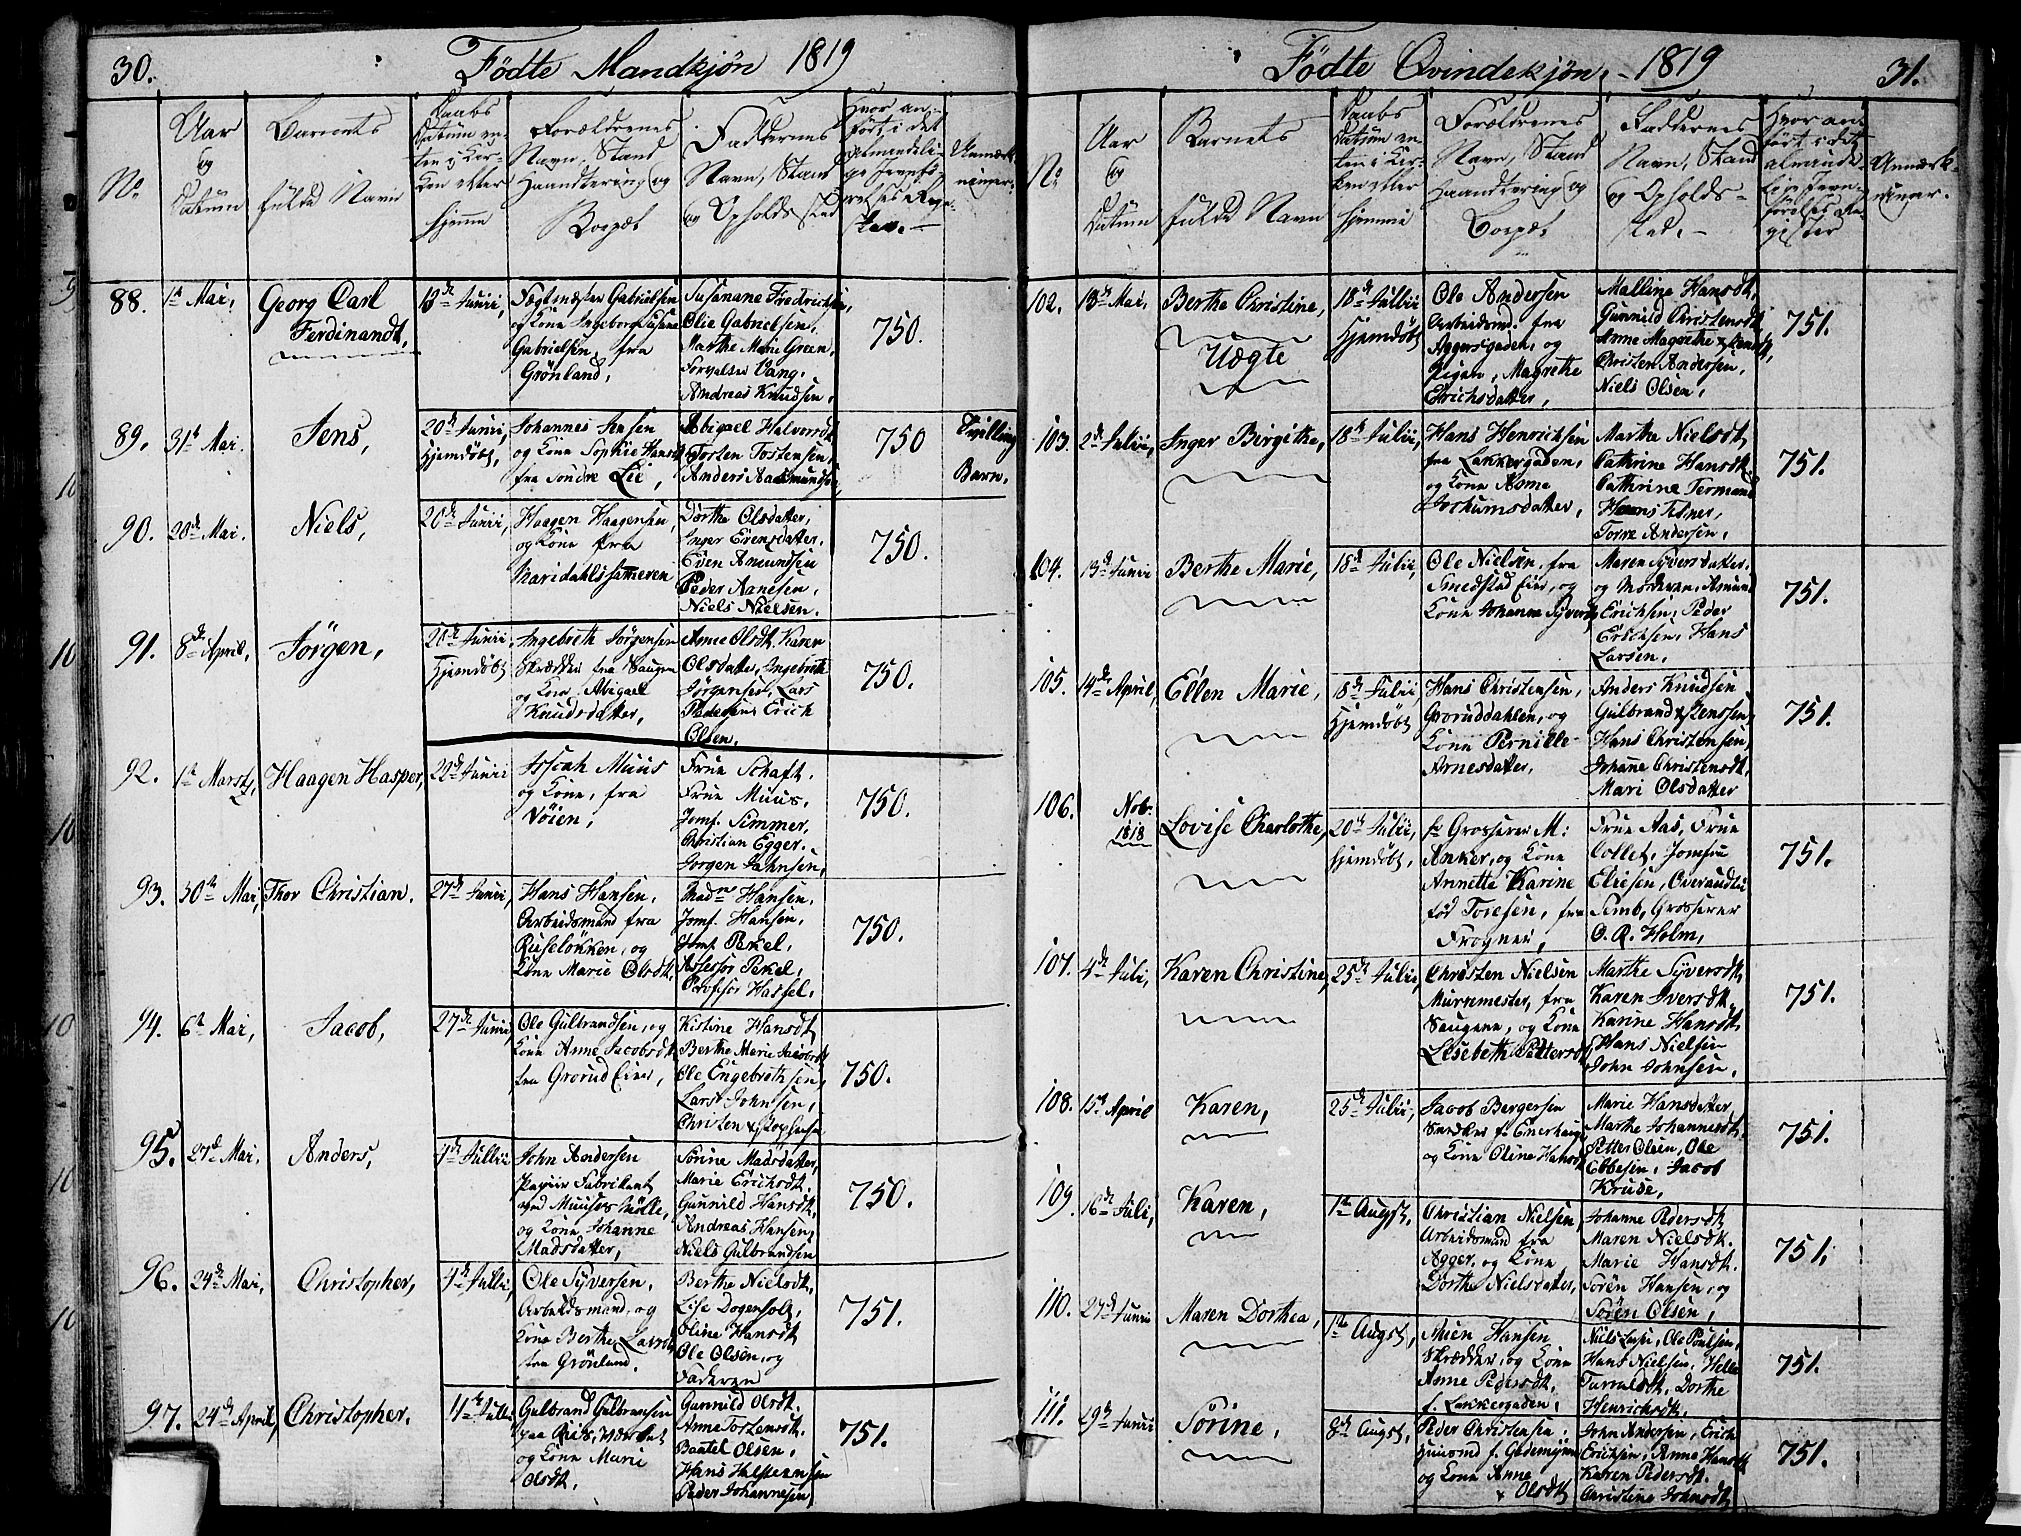 30.
Födte Mandkjön 1819
No
Aar og Datum
Barnets fulde Navn
Daabs Datum enten i Kirken eller hjemme
Forældrenes Navn, Stand Haandtering og Bopæl
Faddernes Navn, Stand og Opholds sted
Hvor anført i det almindelige Jevnförelses Register.
Anmærkninger.
88.
1t Mai,
Georg Carl
Ferdinandt,
13de Junii,
Gabrielsen
og Kone Ingeborg Susane
Gabrielsen, fra
Grönland,
Susanane Fredrichsen,
Olie Gabrielsen,
Marthe Marie Green,
Forvalter Vang,
Andreas Knudsen,
750.
89.
31t Mai.
Jens,
20de Junii,
Hjemdöbt,
Johannes Jensen
og Kone Sophie Hansd
fra söndre Lie,
Abigael Halvorsdt
Torsten Tostensen,
Anders Aasmundsen
750
Tvilling
Barn.
90.
20de Mai.
Niels,
20de Junii,
Haagen Haagensen,
og Kone fra
Maridahlshammeren
Dorthe Olsdatter,
Inger Evensdatter,
Even Amundsen
Peder Aanesen,
Niels Nielsen.
750.
91.
8de April,
Jörgen,
20de Junii,
Hjemdöbt
Ingebreth Jörgensen
Skrædder fra Saugene
og Kone Abigael
Knudsdatter,
Anne Olsdt. Karen
Olsdatter, Ingebreth
Jörgensen, Lars
Pedersen, Erich
Olsen.
750.
92.
1t Marst,
Haagen Hasper,
20de Junii
Josiah Muus
og Kone, fra
Vöien,
Frue Schaft.
Frue Muus,
Jomf. Simmer,
Christian Egger.
Jorgen Jahnsen,
750.
93.
30te Mai,
Thor Christian.
27de Junii,
Hans Hansen,
Arbeidsmand fra
Ruselökken, og
Kone Marie Olsdt.
Madm Hansen,
Jomf. Hansen,
Jomf. Pekel,
Assessor Pekel,
Profesor Hassel,
750.
94.
6te Mai,
Jacob,
27de Junii,
Ole Gulbrandsen, og
Kone Anne Jacobsdt
fra Grorud Eier,
Kistine Hansdt
Berthe Marie Jacobsdt
Ole Engebrethsen,
Lars Johnsen,
Christen
750.
95.
27de Mai.
Anders,
4de Julii
John Andersen
Papiir Fabrikant
ved Muuses Mölle,
og Kone Johanne
Madsdatter,
Sörine Madsdatter,
Marie Erichsdt.
Gunnild Hansdt.
Andreas Hansen,
Niels Gulbrandsen
750.
96.
24de Mai,
Christopher,
4de Julii,
Ole Syversen,
Arbeidsmand, og
Kone Berthe Larsdt
fra Grönland.
Berthe Nielsdt,
Lise
Oline Hansdt
Ole Olsen, og
Faderen
751.
97.
24de April,
Christopher.
11te Julii
Gulbrand Gulbransen
paa Riis,
og Kone Marie
Olsdt.
Gunnild Olsdt.
Anne Tostensdt.
Baatel Olsen,
Hans Halstensen
Peder Johannesen
751.
Födte Qvindekjön, – 1819
31.
No
Aar og Datum
Barnets fulde Navn
Daabs Datum enten i Kirken eller hjemme
Forældrenes Navn, Stand Haandtering og Bopæl
Faddernes Navn, Stand og Opholds-sted.
Hvor anfört i det almindelige Jevnförelses Register
Anmærkninger.
102.
18de Mai.
Berthe Christine,
Uægte
18de Julii
Hjemdöbt
Ole Andersen
Arbeidsmd. fra
Aggersgaden, og
Pigen, Magrethe
Erichsdatter,
Malline Hansdt,
Gunnild Christensdt,
Anne Magrethe
Christen Andersen,
Niels Olsen,
751.
103.
2de Julii,
Inger Birgithe,
18de Julii,
Hans Henrichsen
fra Lakkergaden,
og Kone Anne
Jochumsdatter,
Marthe Nielsdt
Cathrine Hansdt.
Cathrine Fermand
Hans
Torre Andersen,
751.
104.
13de Junii
Berthe Marie,
18de Julii,
Ole Nielsen, fra
Smedstad Eier, og
Kone Johanne Syversd
Maren Syversdatter.
og Moderen, Asmund
Erichsen, Peder
Erichsen, Hans
Larsen,
751.
105.
14de April,
Ellen Marie,
18de Julii,
Hjemdöbt
Hans Christensen,
Groruddahlen, og
Kone Pernille
Arnesdatter,
Anders Knudsen
Gulbrand Jensen,
Hans Christensen,
Johane Christensdt,
Mari Olsdatter
751.
106.
Nob.
1818
Lovise Charlothe,
20de Julii,
hjemdöbt,
Hr Grosserer M:
Anker, og Kone
Annette Karine
föd Toresen, fra
Frogner,
Frue Aas, Frue
Collet, Jomfru
Eliesen,
Grosserer
O. R. Holm,
751.
107.
4de Juli,
Karen Christine,
25de Julii,
Christen Nielsen
Murrmester, fra
Saugene, og Kone
Lisebeth Pettersd
Marthe Syversdt,
Karen Iversdt.
Karine Hansdt
Hans Nielsen
John Johnsen,
751.
108.
15de April
Karen,
25de Julii,
Jacob Bergersen
Snedker fr Enerhaug
og Kone Oline Hansdt
Marie Hansdatter
Marthe Johannesdt.
Petter Olsen, Ole
Ebbesen, Jacob
Kruse,
751.
109.
16de Juli,
Karen,
1te Augst,
Christian Nielsen,
Arbeidsmand fra
Agger, og Kone
Dorthe Nielsdatter,
Johanne Pedersdt
Maren Nielsdt.
Marie Hansdt.
Sören Hansen, og
Sören Olsen,
751.
110.
27de Junii
Maren Dorthea,
1te Augst,
Hansen
Skrædder, og Kone
Anne Pedersdt.
f. Lakkergaden,
Ole Poulsen,
Hans Nielsen, Helle
Dorthe
Henrichsdt.
751.
111.
29de Junii
Sörine,
8de Augst,
Peder Christensen,
og Kone Anne
Olsdt
John Andersen, Erich
Erichsen, Anne Hansdt
Karen Pedersdt.
Christine Johnsdt,
751.